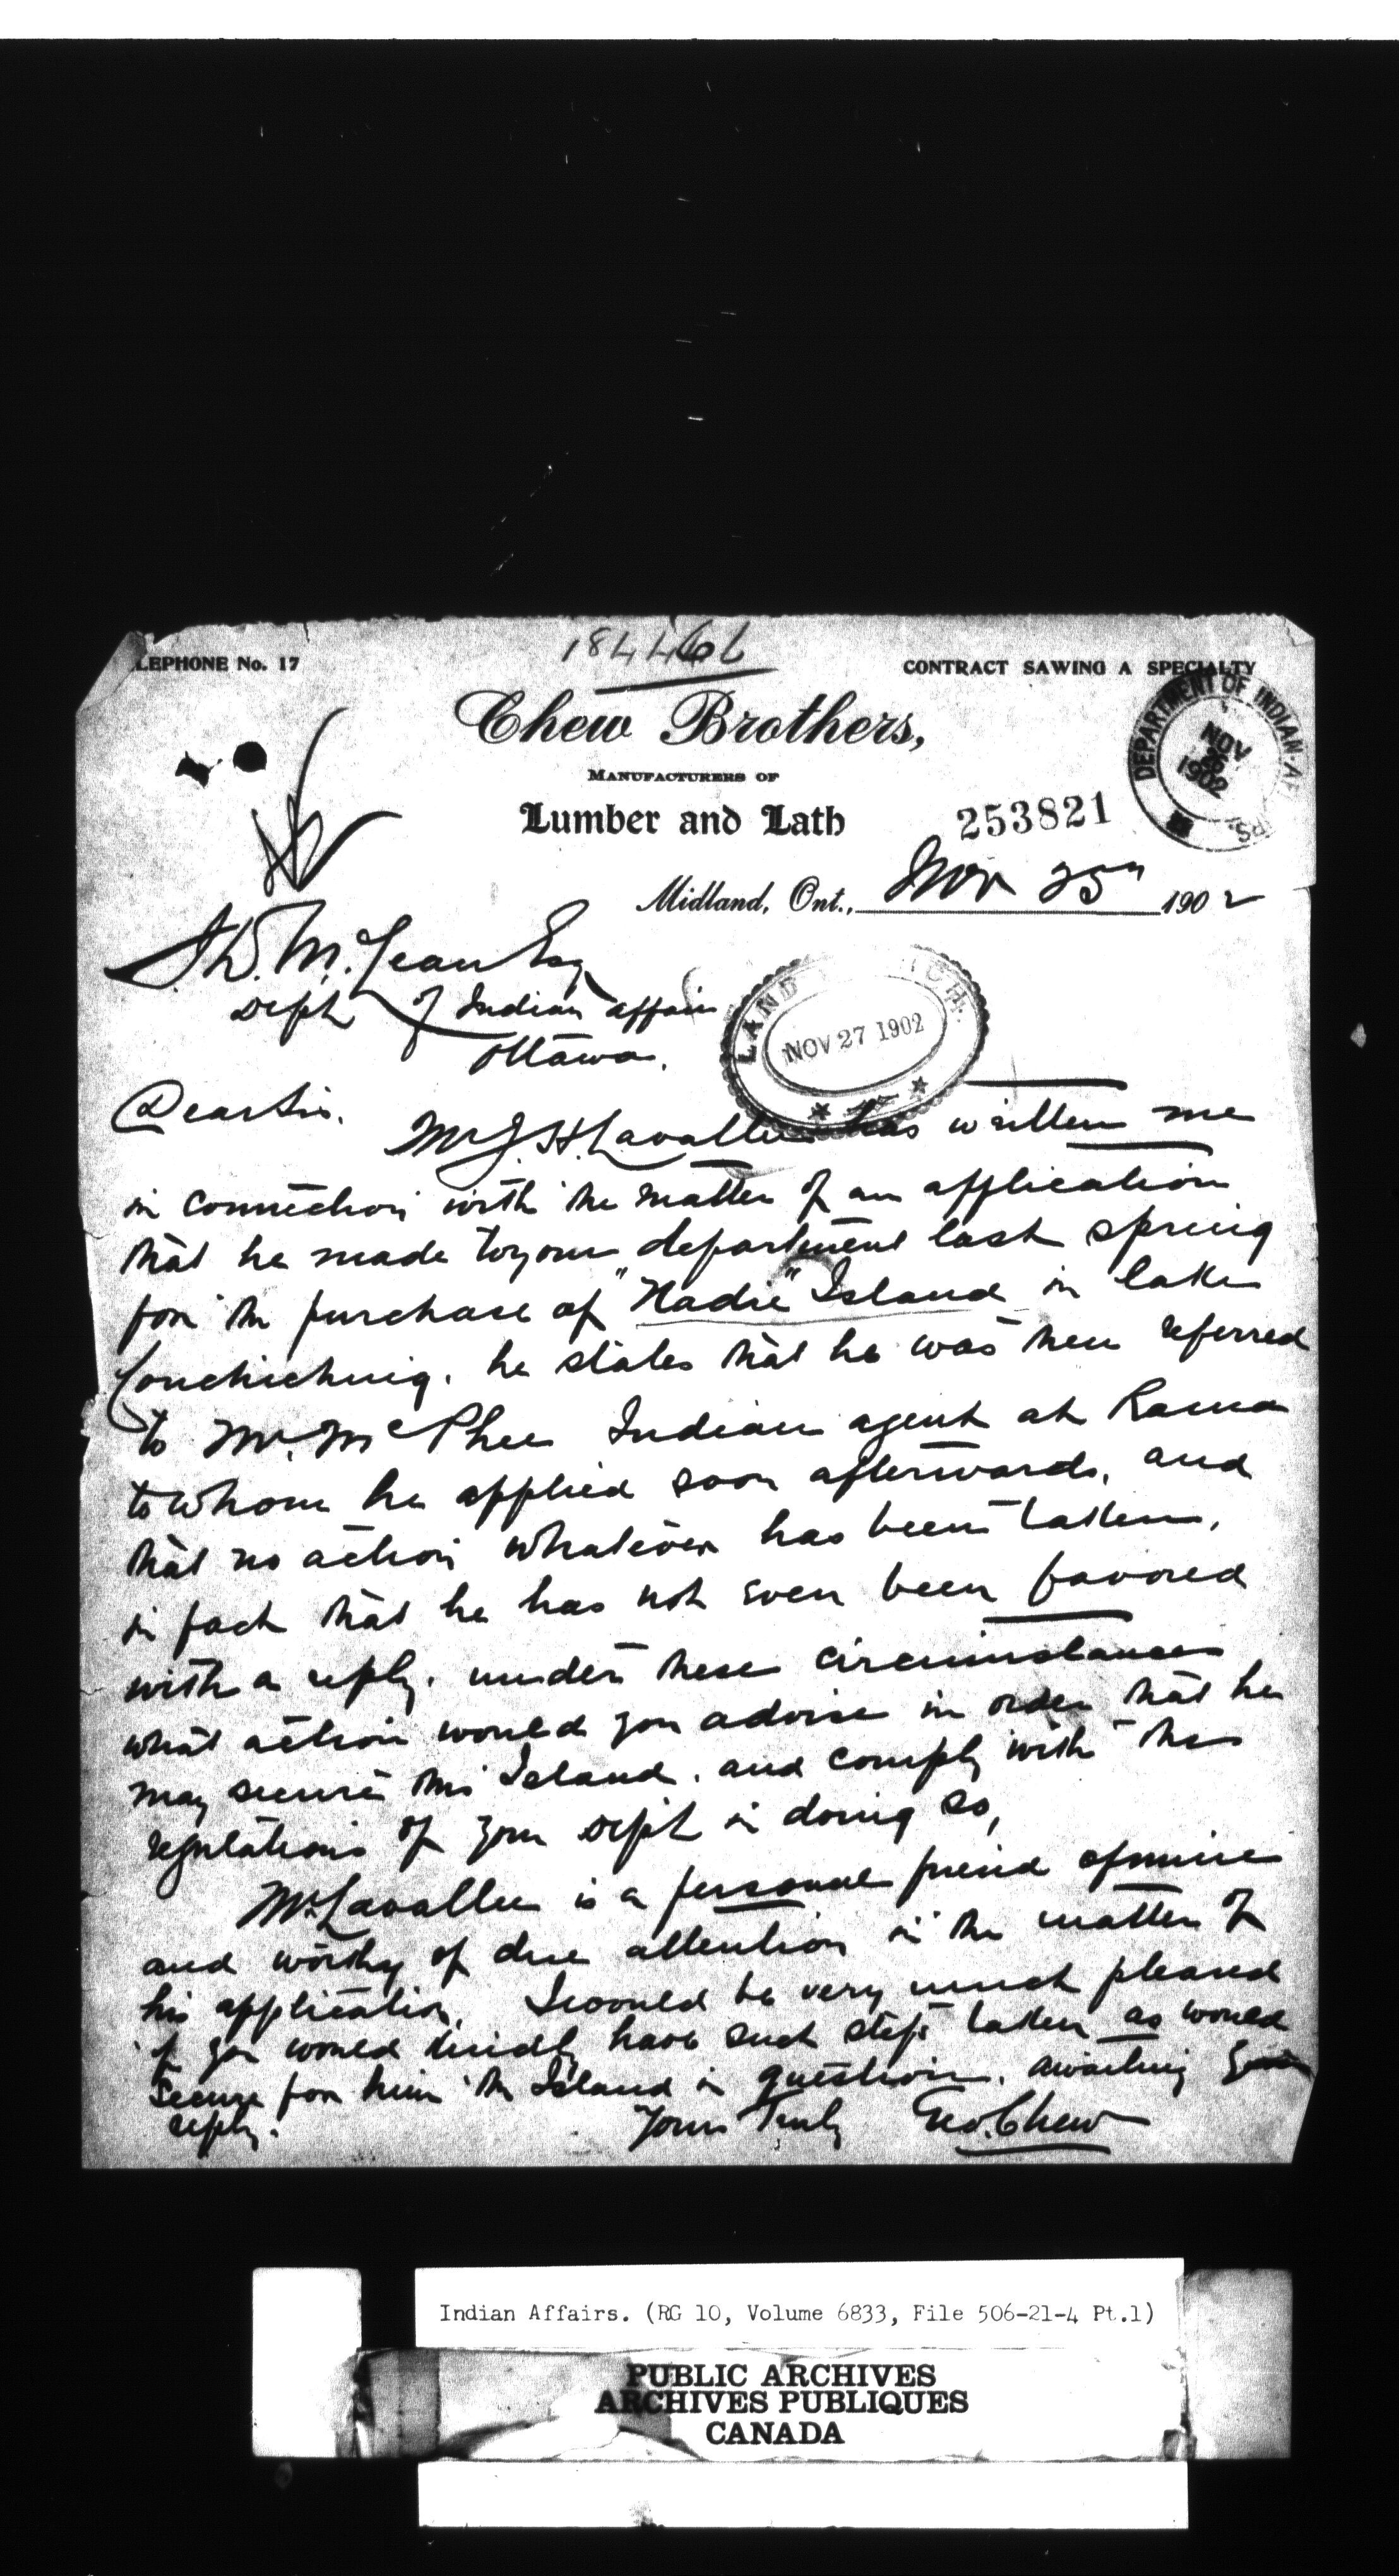 184466
TELEPHONE No. 17
CONTRACT SAWING A SPECIALTY
Chew Brothers,
MANUFACTURERS OF
Lumber and Lath
253821
DEPARTMENT OF INDIAN AF
NOV 26 1902
Midland, Ont., Nov 25" 1902
J. D. McLean Esq
Dept of Indian affairs
Ottawa.
LAND
NOV 27 1902
Dear Sir.
Mr J. H. Lavallee has written me
in connection with the matter of an application
that he made to your department last spring
for the purchase of "Nadie" Island in lake
Couchiching. he states that he was then referred
to Mr. McPhee Indian agent at Rama
to whom he applied soon afterwards, and
that no action whatever has been taken,
in fact that he has not even been favored
with a reply. under these circumstances
what action would you advise in order that he
may secure this Island. and comply with the
regulations of your Dept in doing so,
Mr Lavallee is a personal friend of mine
and worthy of due attention in the matter of
his application, I would be very much pleased
if you would kindly have such steps taken as would
secure for him the Island in question. awaiting your
reply.
Yours Truly Geo. Chew
Indian Affairs. (RG 10, Volume 6833, File 506-21-4 Pt.1)
PUBLIC ARCHIVES
ARCHIVES PUBLIQUES
CANADA